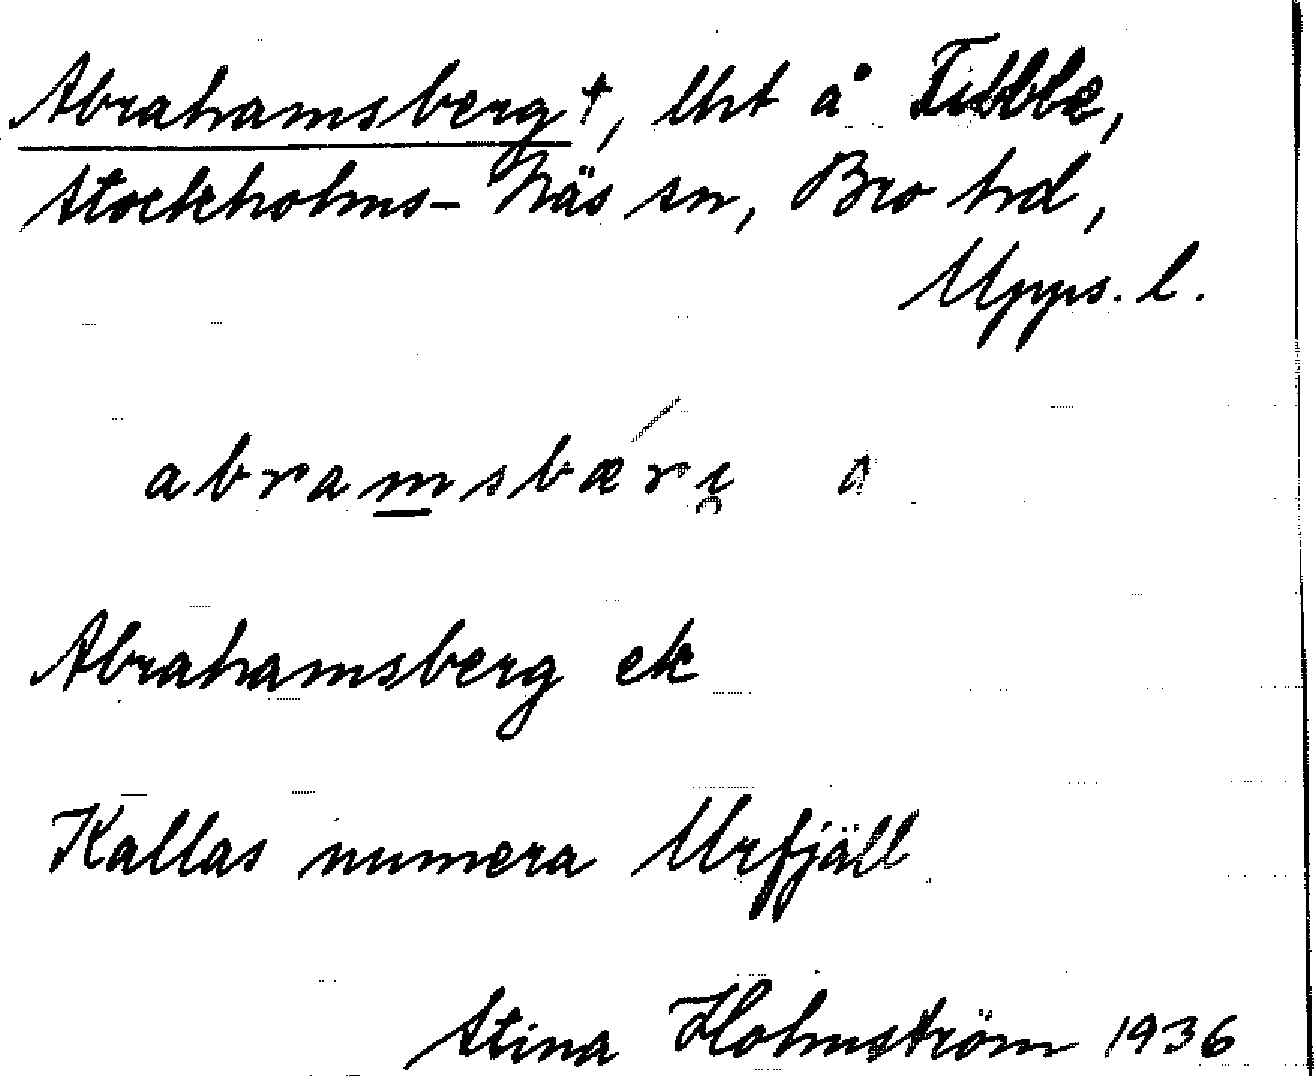 Abrahamsberg †, lht å Tibble,
Stockholms-Näs sn, Bro hd,
Upps. l.
abramsbærı̥ å
Abrahamsberg ek
Kallas numera Urfjäll
Stina Holmström 1936